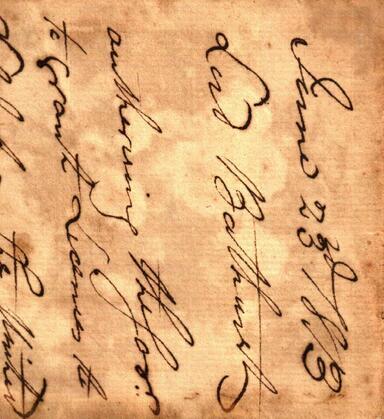 June 23d 1813
Ld Bathurst
authorising the Govr.
to Grant Licences to
the United